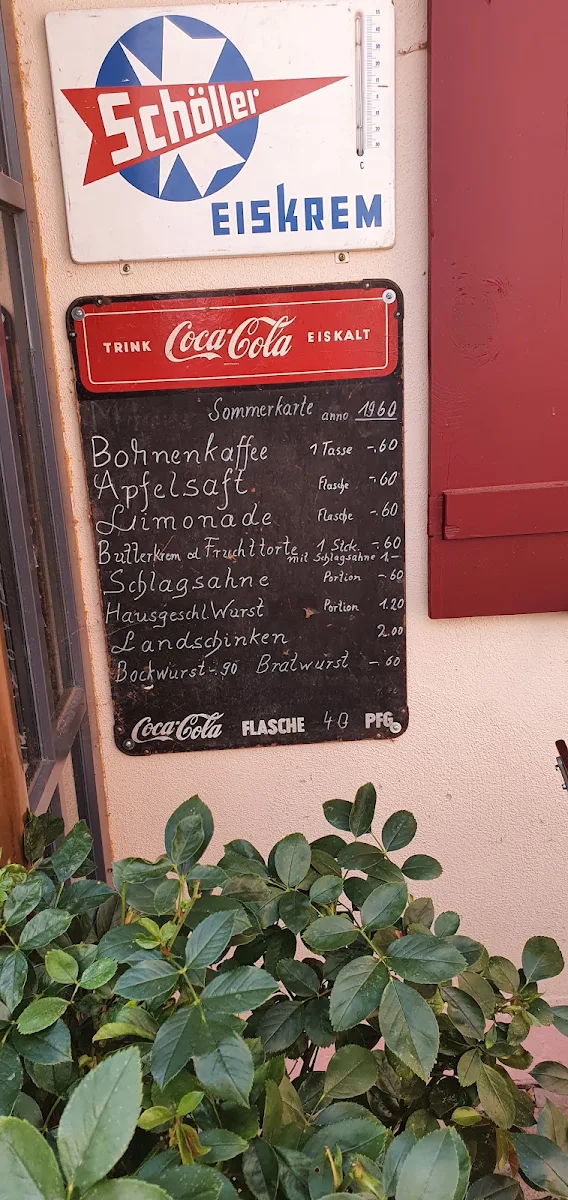 Schöller
EISKREM
C
TRINK Coca-Cola EISKALT
Sommerkarte anno 1960
Bohnenkaffee 1 Tasse -.60
Apfelsaft Flasche -.60
Limonade Flasche -.60
Butterkrem od Fruchttorte 1 Stck. -.60
mit Schlagsahne 1.-
Schlagsahne Portion -60
Hausgeschl Wurst Portion 1.20
Landschinken 2.00
Bockwurst -.90 Bratwurst -60
Coca-Cola FLASCHE 40 PFG